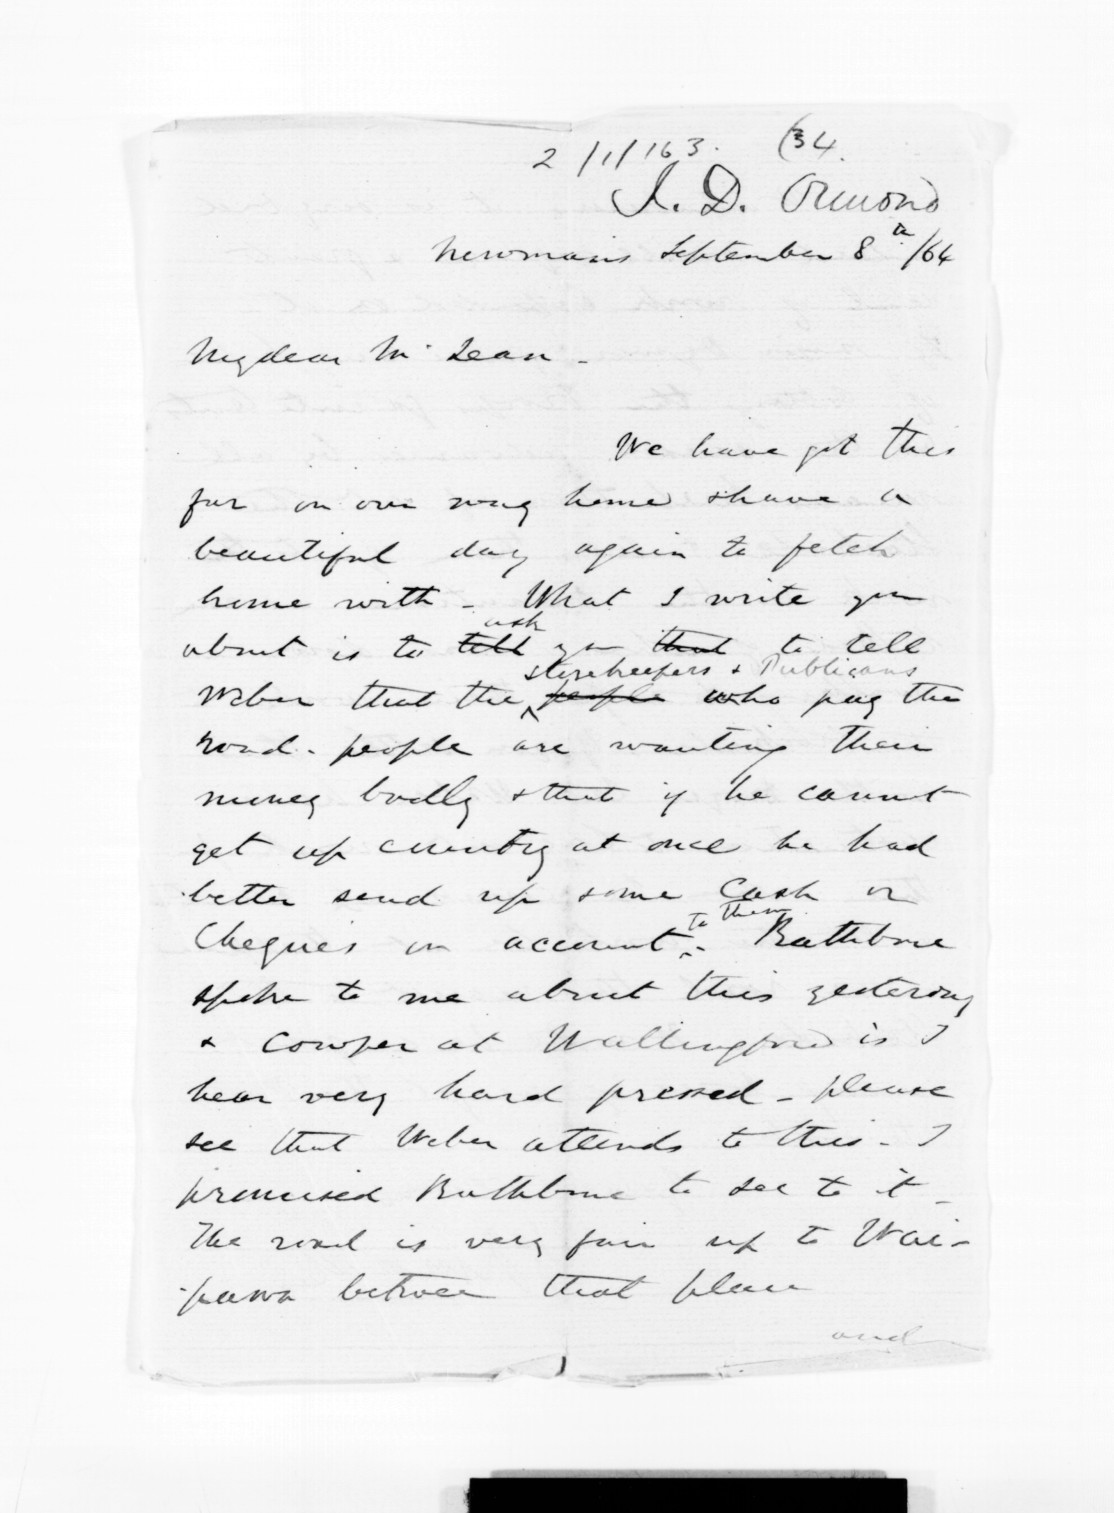 2/1/163. (34.
J. D. Ormond
Newman's September 8th /64
My dear McLean -
We have got this
far on our way home & have a
beautiful day again to fetch
home with - What I write you
ask
about is to tell you that to tell
storekeepers & Publicans
Weber that the people who pay the
road-people are wanting their
money badly & that if he cannot
get up country at once he had
better send up some Cash or
to them
Cheques on account. - Rathbone
spoke to me about this yesterday
& Cowper at Wallingford is I
hear very hard pressed - please
see that Weber attends to this - I
promised Rathbone to see to it -
The road is very fair up to Wai-
-pawa between that place
and